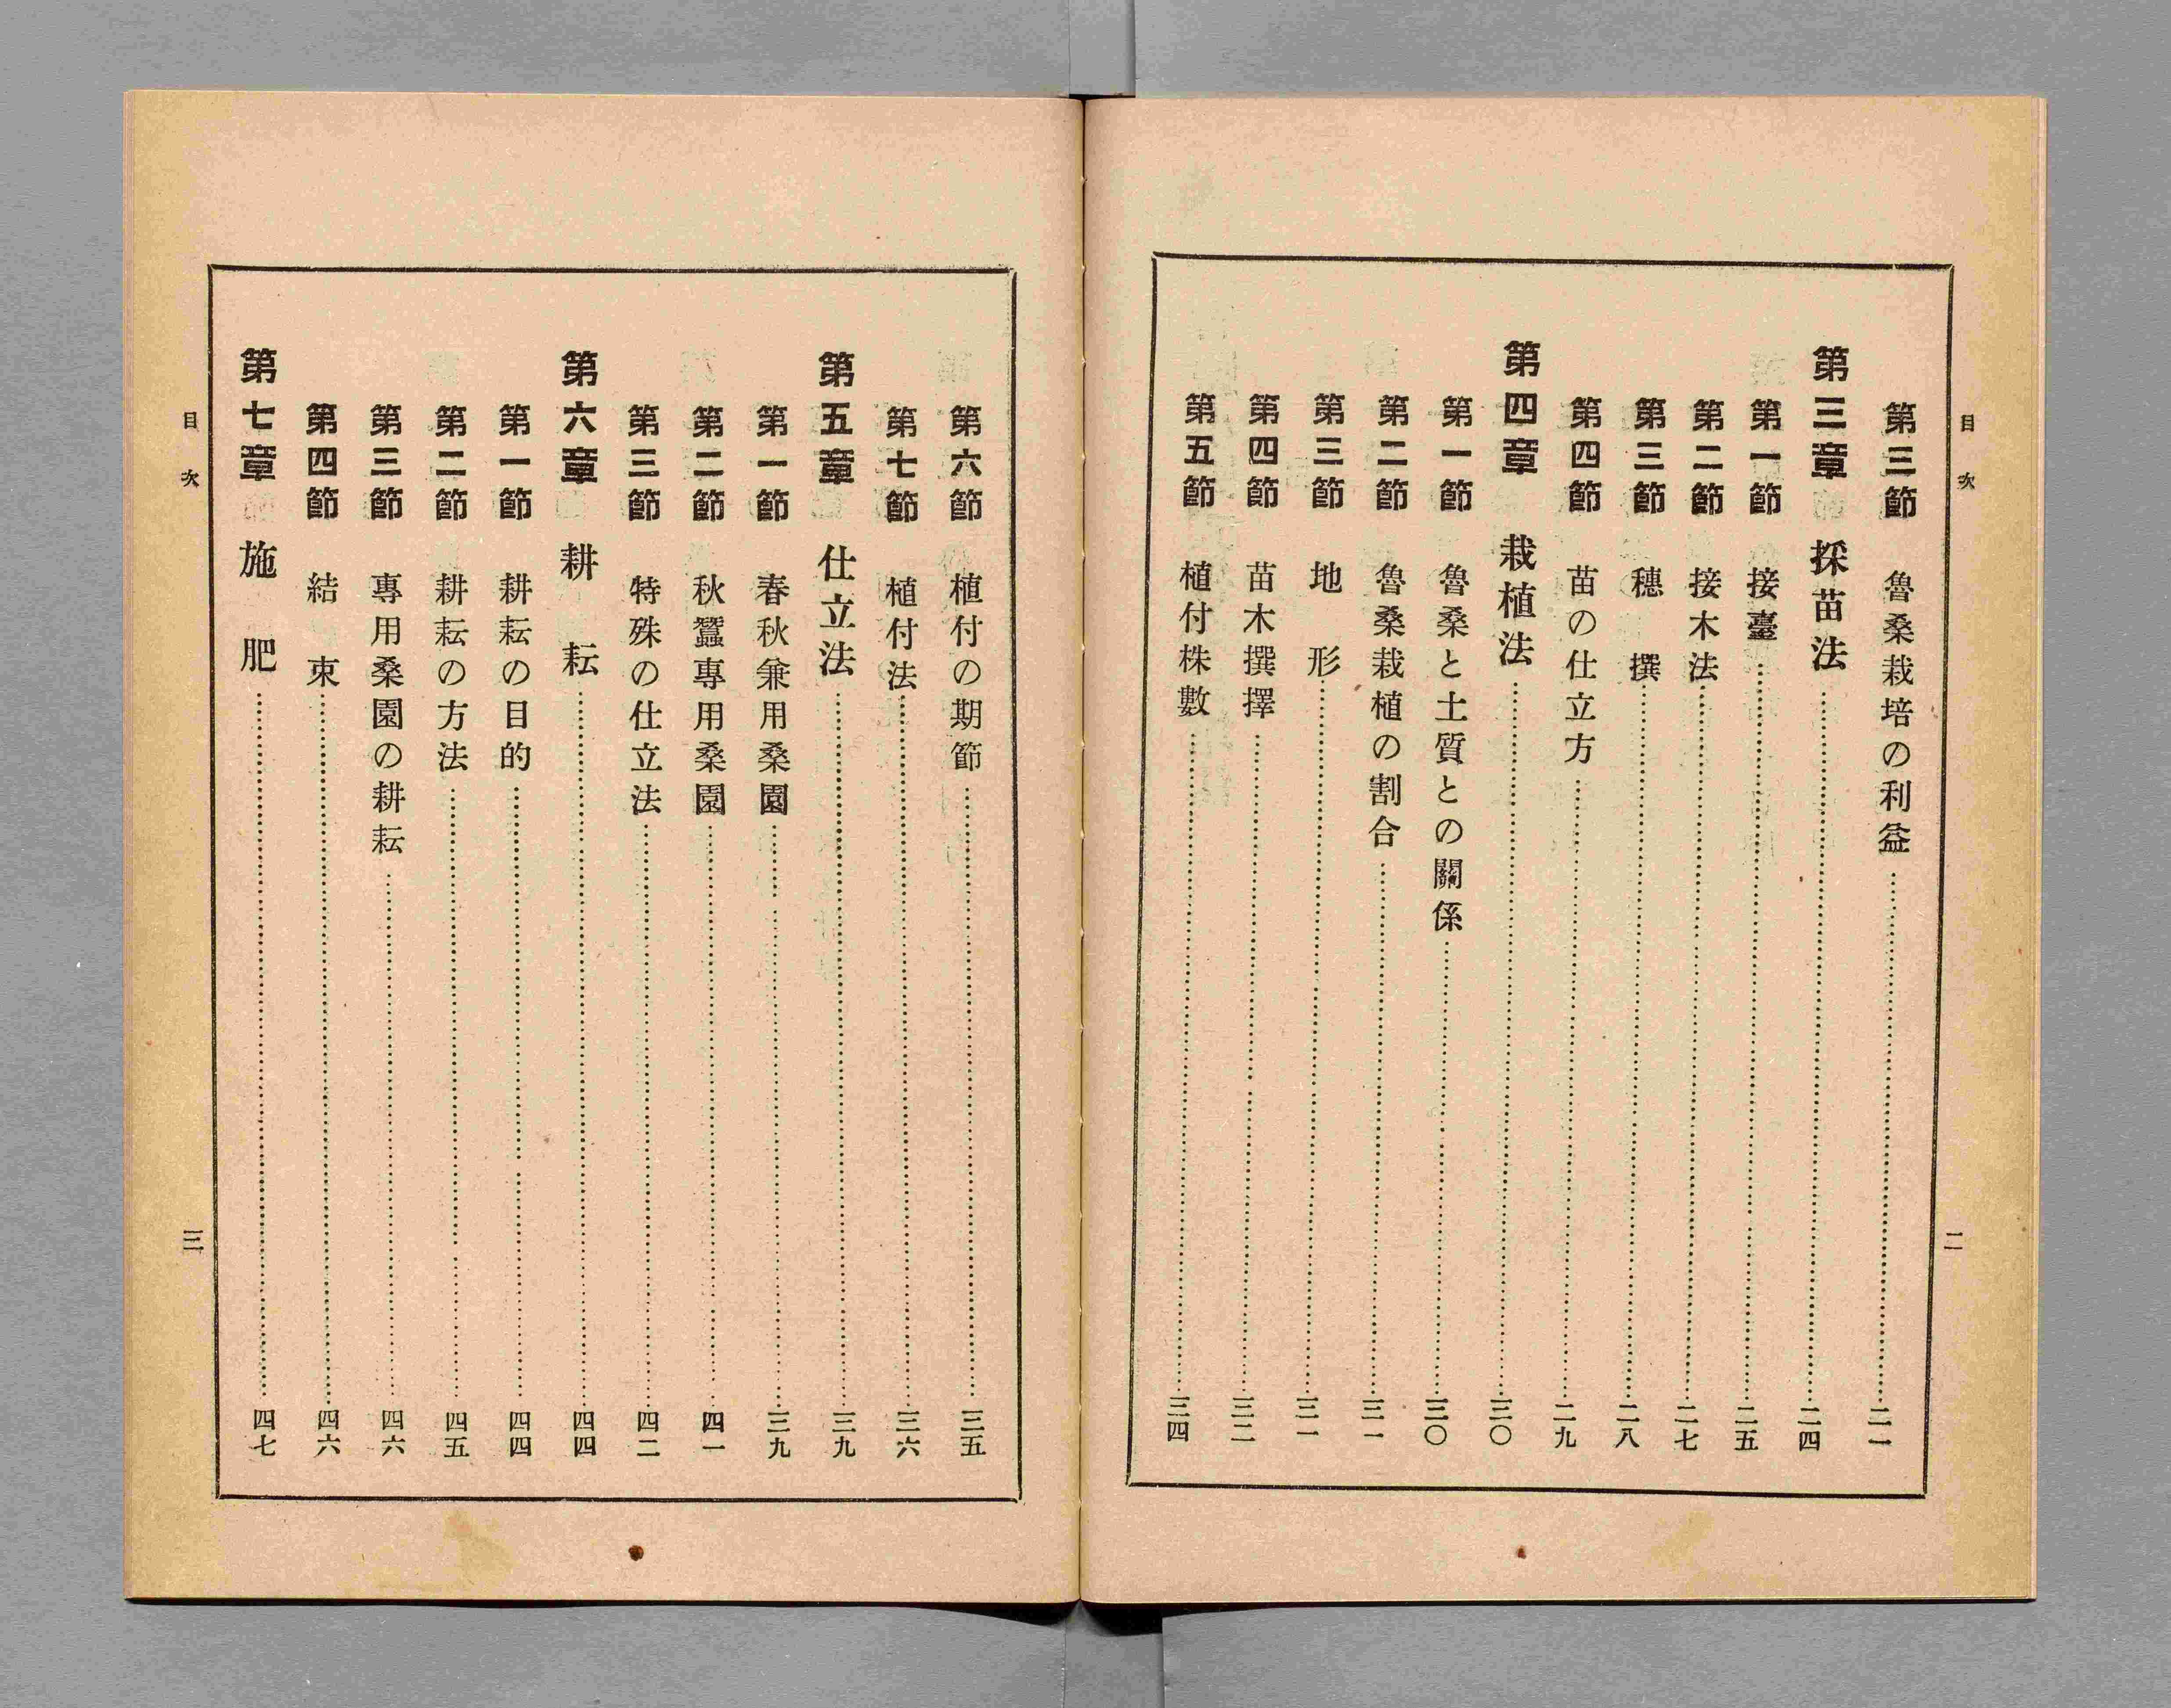 目次
二
第三節 魯桑栽培の利益…二一
第三章 採苗法…二四
第一節 接臺…二五
第二節 接木法…二七
第三節 穗撰…二八
第四節 苗の仕立方…二九
第四章 栽植法…三〇
第一節 魯桑と土質との關係…三〇
第二節 魯桑栽植の割合…三一
第三節 地形…三一
第四節 苗木撰擇…三二
第五節 植付株數…三四
第六節 植付の期節…三五
第七節 植付法…三六
第五章 仕立法…三九
第一節 春秋兼用桑園…三九
第二節 秋蠶專用桑園…四一
第三節 特殊の仕立法…四二
第六章 耕耘…四四
第一節 耕耘の目的…四四
第二節 耕耘の方法…四五
第三節 專用桑園の耕耘…四六
第四節 結束…四六
第七章 施肥…四七
目次
三